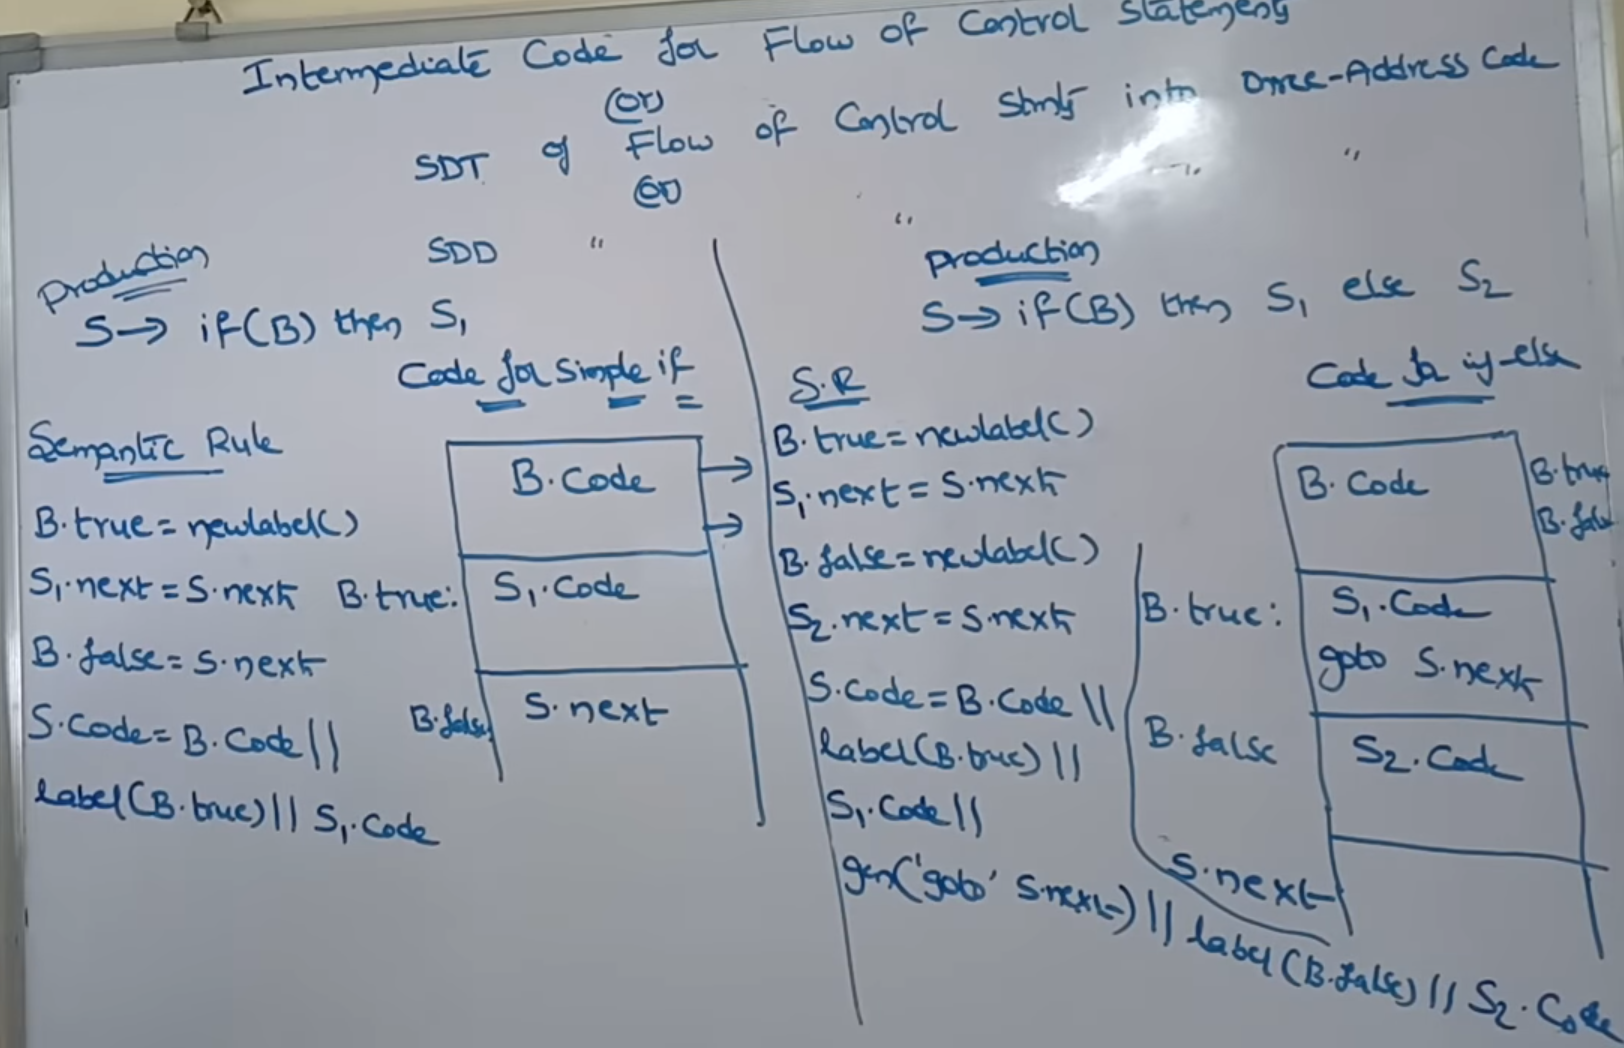 Intermediate Code for Flow of Control Statements
(or)
SDT of Flow of Control Stmts into Three-Address Code
(or)
SDD " " " "
Production
S → if(B) then S₁
Code for Simple if
Semantic Rule
B.true = newlabel()
S₁.next = S.next
B.false = S.next
S.Code = B.Code ||
label(B.true) || S₁.Code
B.Code
B.true: S₁.Code
B.false S.next
Production
S → if(B) then S₁ else S₂
Code for if-else
S.R
B.true = newlabel()
S₁.next = S.next
B.false = newlabel()
S₂.next = S.next
S.Code = B.Code ||
label(B.true) ||
S₁.Code ||
gen('goto' S.next) || label(B.false) || S₂.Code
B.Code B.true
B.fals
B.true: S₁.Code
goto S.next
B.false S₂.Code
S.next